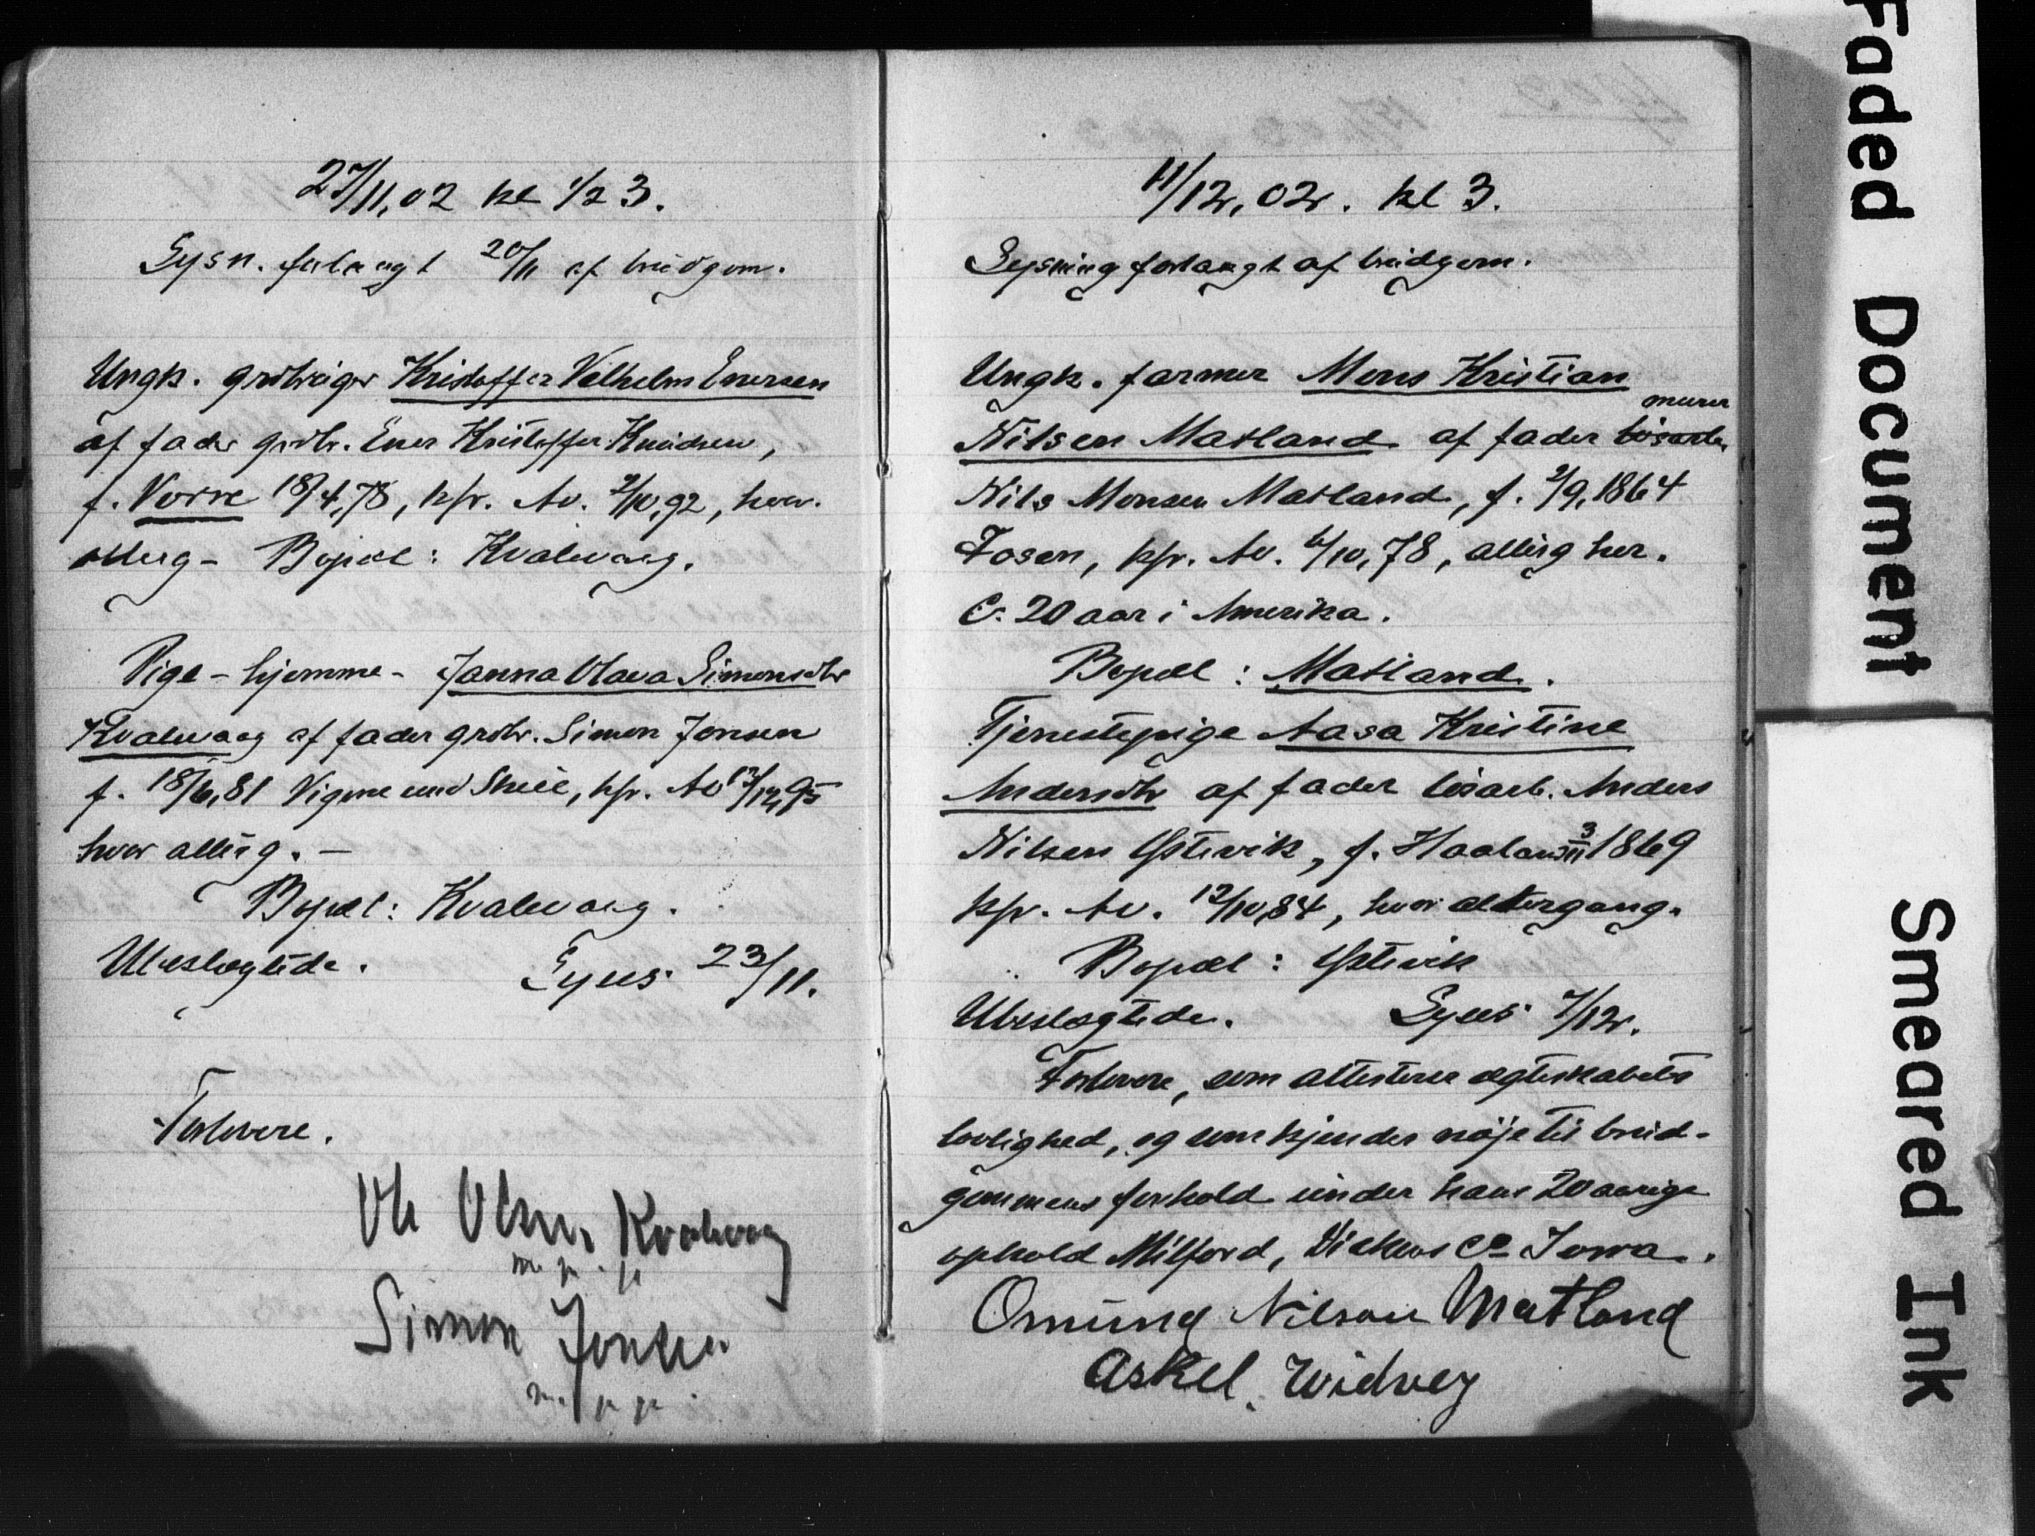 27/11,02 kl 1/2 3.
Lysn. forlangt 20/11 af brudgom.
Ungk. grdbruger Kristoffer Vilhelm Enersen
af fader grdbr. Ener Kristoffer Knudsen,
f. Vorre 18/4,78, kfr. Av. 2/10,92, hvor.
alterg - Bopæl: Kvalevaag.
Pige - hjemme - Janna Olava Simonsdtr
Kvalevaag af fader grdbr. Simon Jonsen
f. 18/6,81 Skeie, kfr. Av 12/95
hvor alterg. -
Bopæl: Kvalevaag.
Ubeslægtede. Lyses 23/11.
Forlovere.
Ole Olsen Kvalevaag
m. p. p
Simon Jonsen
m. p p
11/12,02. kl 3.
Lysning forlangt af brudgom.
Ungk. farmer Mons Kristian
murer
Nilsen Matland af fader løsarb.
Nils Monsen Matland, f. 2/9,1864
Fosen, kfr. Av. 6/10,78, alterg her.
C. 20 aar i Amerika.
Bopæl: Matland.
Tjenestepige Aasa Kristine
Andersdtr af fader løsarb. Anders
Nilsen Østevik, f. Haaland 3/11 1869
kfr. Av. 12/10,84, hvor altergang.
Bopæl: Østevik
Ubeslægtede. Lyses 7/12.
Forlovere, som attesterer ægteskabets
lovlighed, og som kjender nøje til brud-
gommens forhold under hans 20 aarige
ophold Milford, Dickens Co Iowa.
Osmund Nilson Matland
Askel Widvey
Faded Document
Smeared Ink